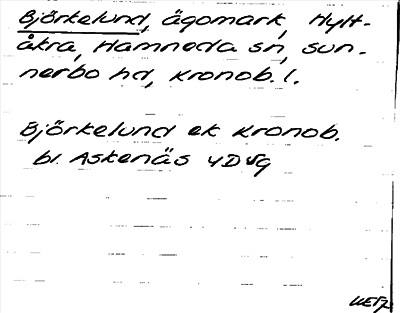 Björkelund, ägomark, Hylt-
åkra, Hamneda sn, Sun-
nerbo hd, Kronob. l.
Björkelund ek Kronob.
bl. Askenäs 4D